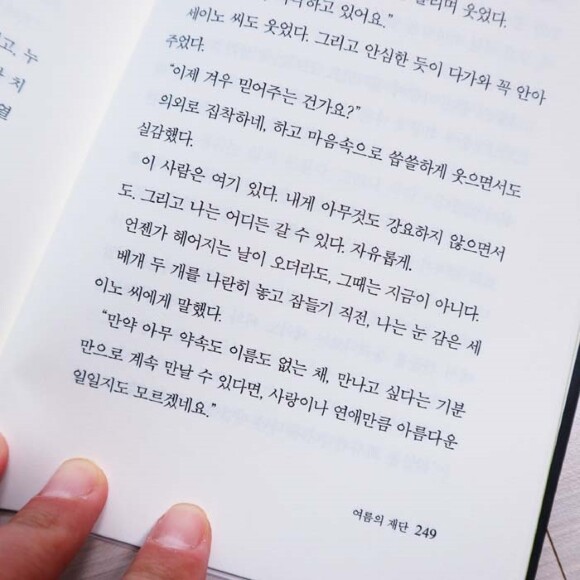 하고 있어요."
며 웃었다.
세이노 씨도 웃었다. 그리고 안심한 듯이 다가와 꼭 안아
주었다.
"이제 겨우 믿어주는 건가요?"
의외로 집착하네, 하고 마음속으로 씁쓸하게 웃으면서도
실감했다.
이 사람은 여기 있다. 내게 아무것도 강요하지 않으면서
도. 그리고 나는 어디든 갈 수 있다. 자유롭게.
언젠가 헤어지는 날이 오더라도, 그때는 지금이 아니다.
베개 두 개를 나란히 놓고 잠들기 직전, 나는 눈 감은 세
이노 씨에게 말했다.
"만약 아무 약속도 이름도 없는 채, 만나고 싶다는 기분
만으로 계속 만날 수 있다면, 사랑이나 연애만큼 아름다운
일일지도 모르겠네요."
여름의 재단 249